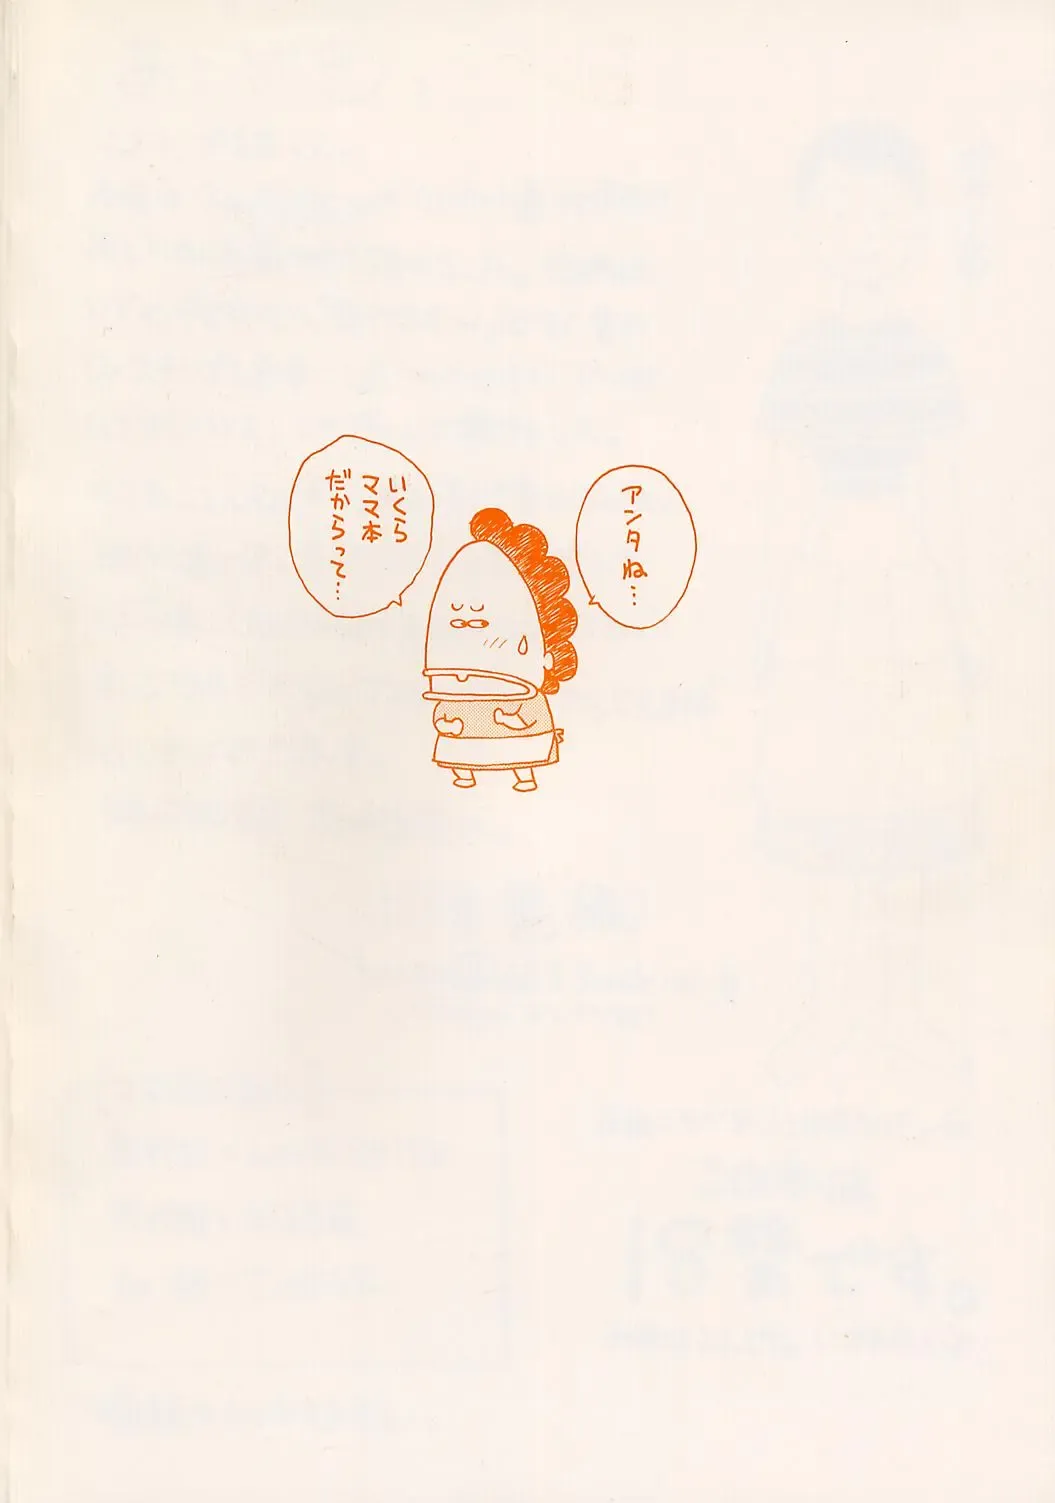 アンタね…
いくら
ママ本
だからって…